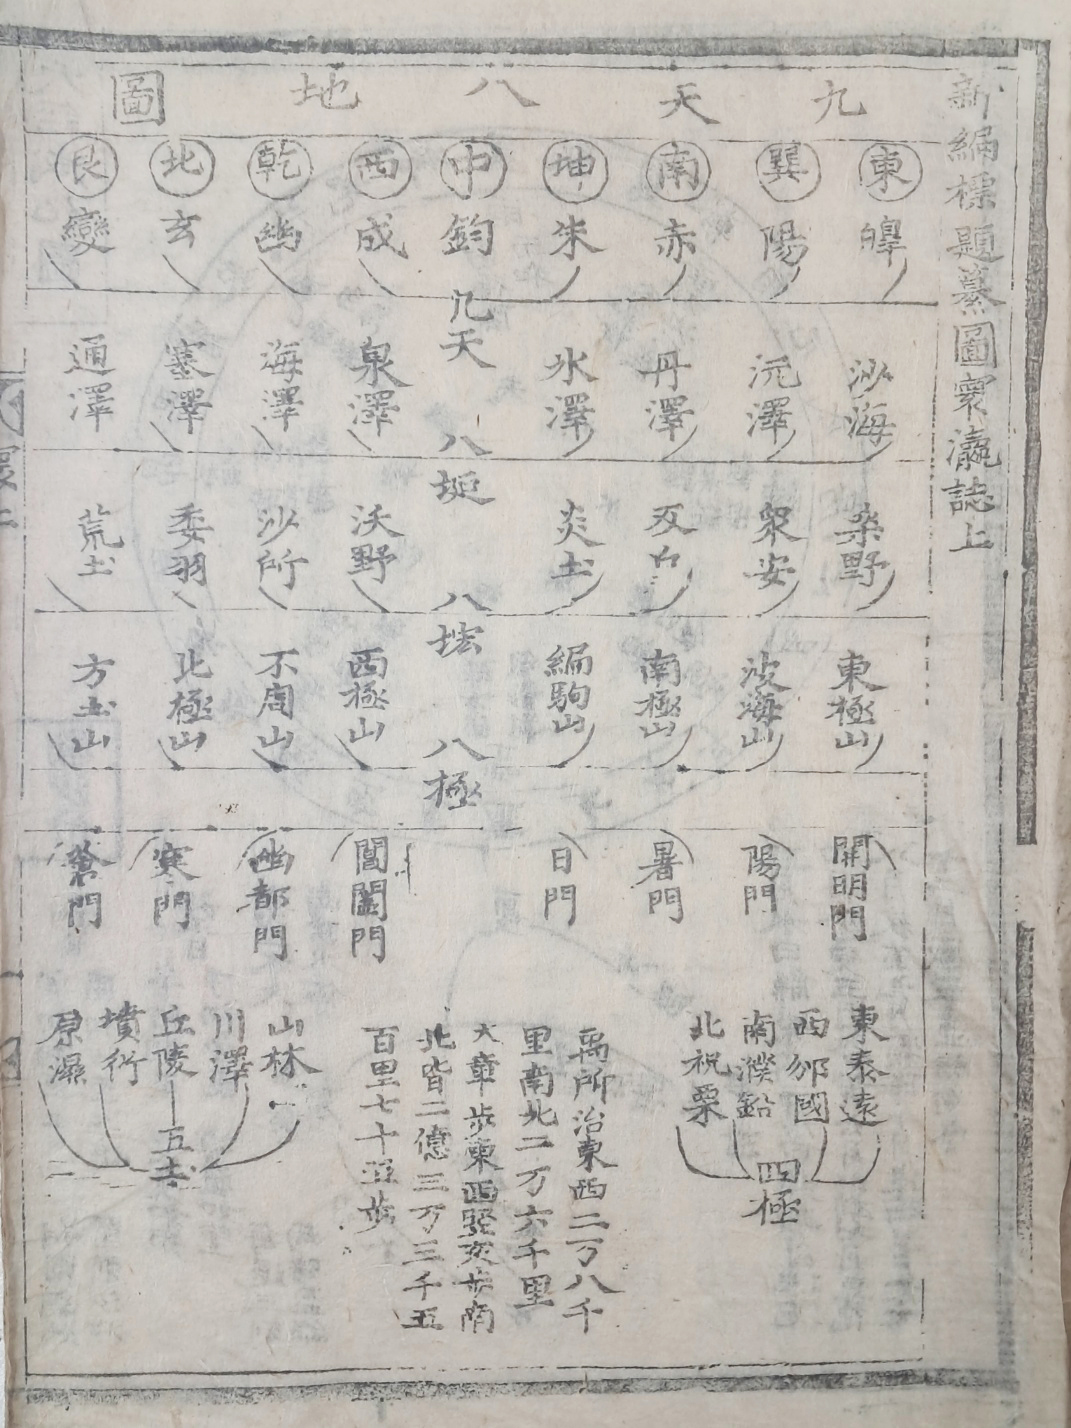 新編標題纂圖寰瀛誌上
九天八地圖
東 巽 南 坤 中 西 乾 北 艮
皡 陽 赤 朱 鈞 成 幽 玄 變
九天
沙海 沅澤 丹澤 水澤 泉澤 海澤 塞澤 通澤
八埏
桒野 衆安 反户 炎土 沃野 沙所 委羽 荒土
八竑
東極山 波海山 南極山 編駒山 西極山 不周山 北極山 方土山
八極
開明門 陽門 暑門 日門 閶闔門 幽都門 寒門 蒼門
東泰遠
西邠國
南濮鈆
北祝栗
四極
禹所治東西二万八千
里南北二万六千里
大章步東西竪亥步南
北皆二億三万三千五
百里七十五步
山林
川澤
丘陵
墳衍
原濕
五土